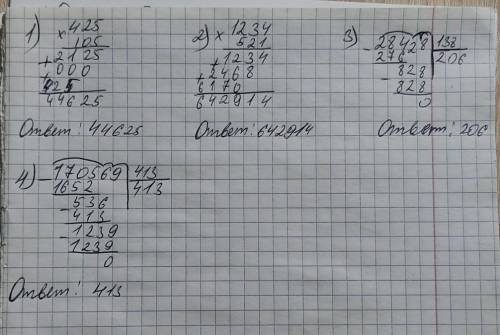 1) × 425
105
+ 2125
+ 000
425
44625
Ответ: 44625
2) × 1234
521
+ 1234
+ 2468
6170
642914
Ответ: 642914
3) - 28428 | 138
276 | 206
- 828
828
0
Ответ: 206
4) - 170569 | 413
1652 | 413
- 536
413
- 1239
1239
0
Ответ: 413